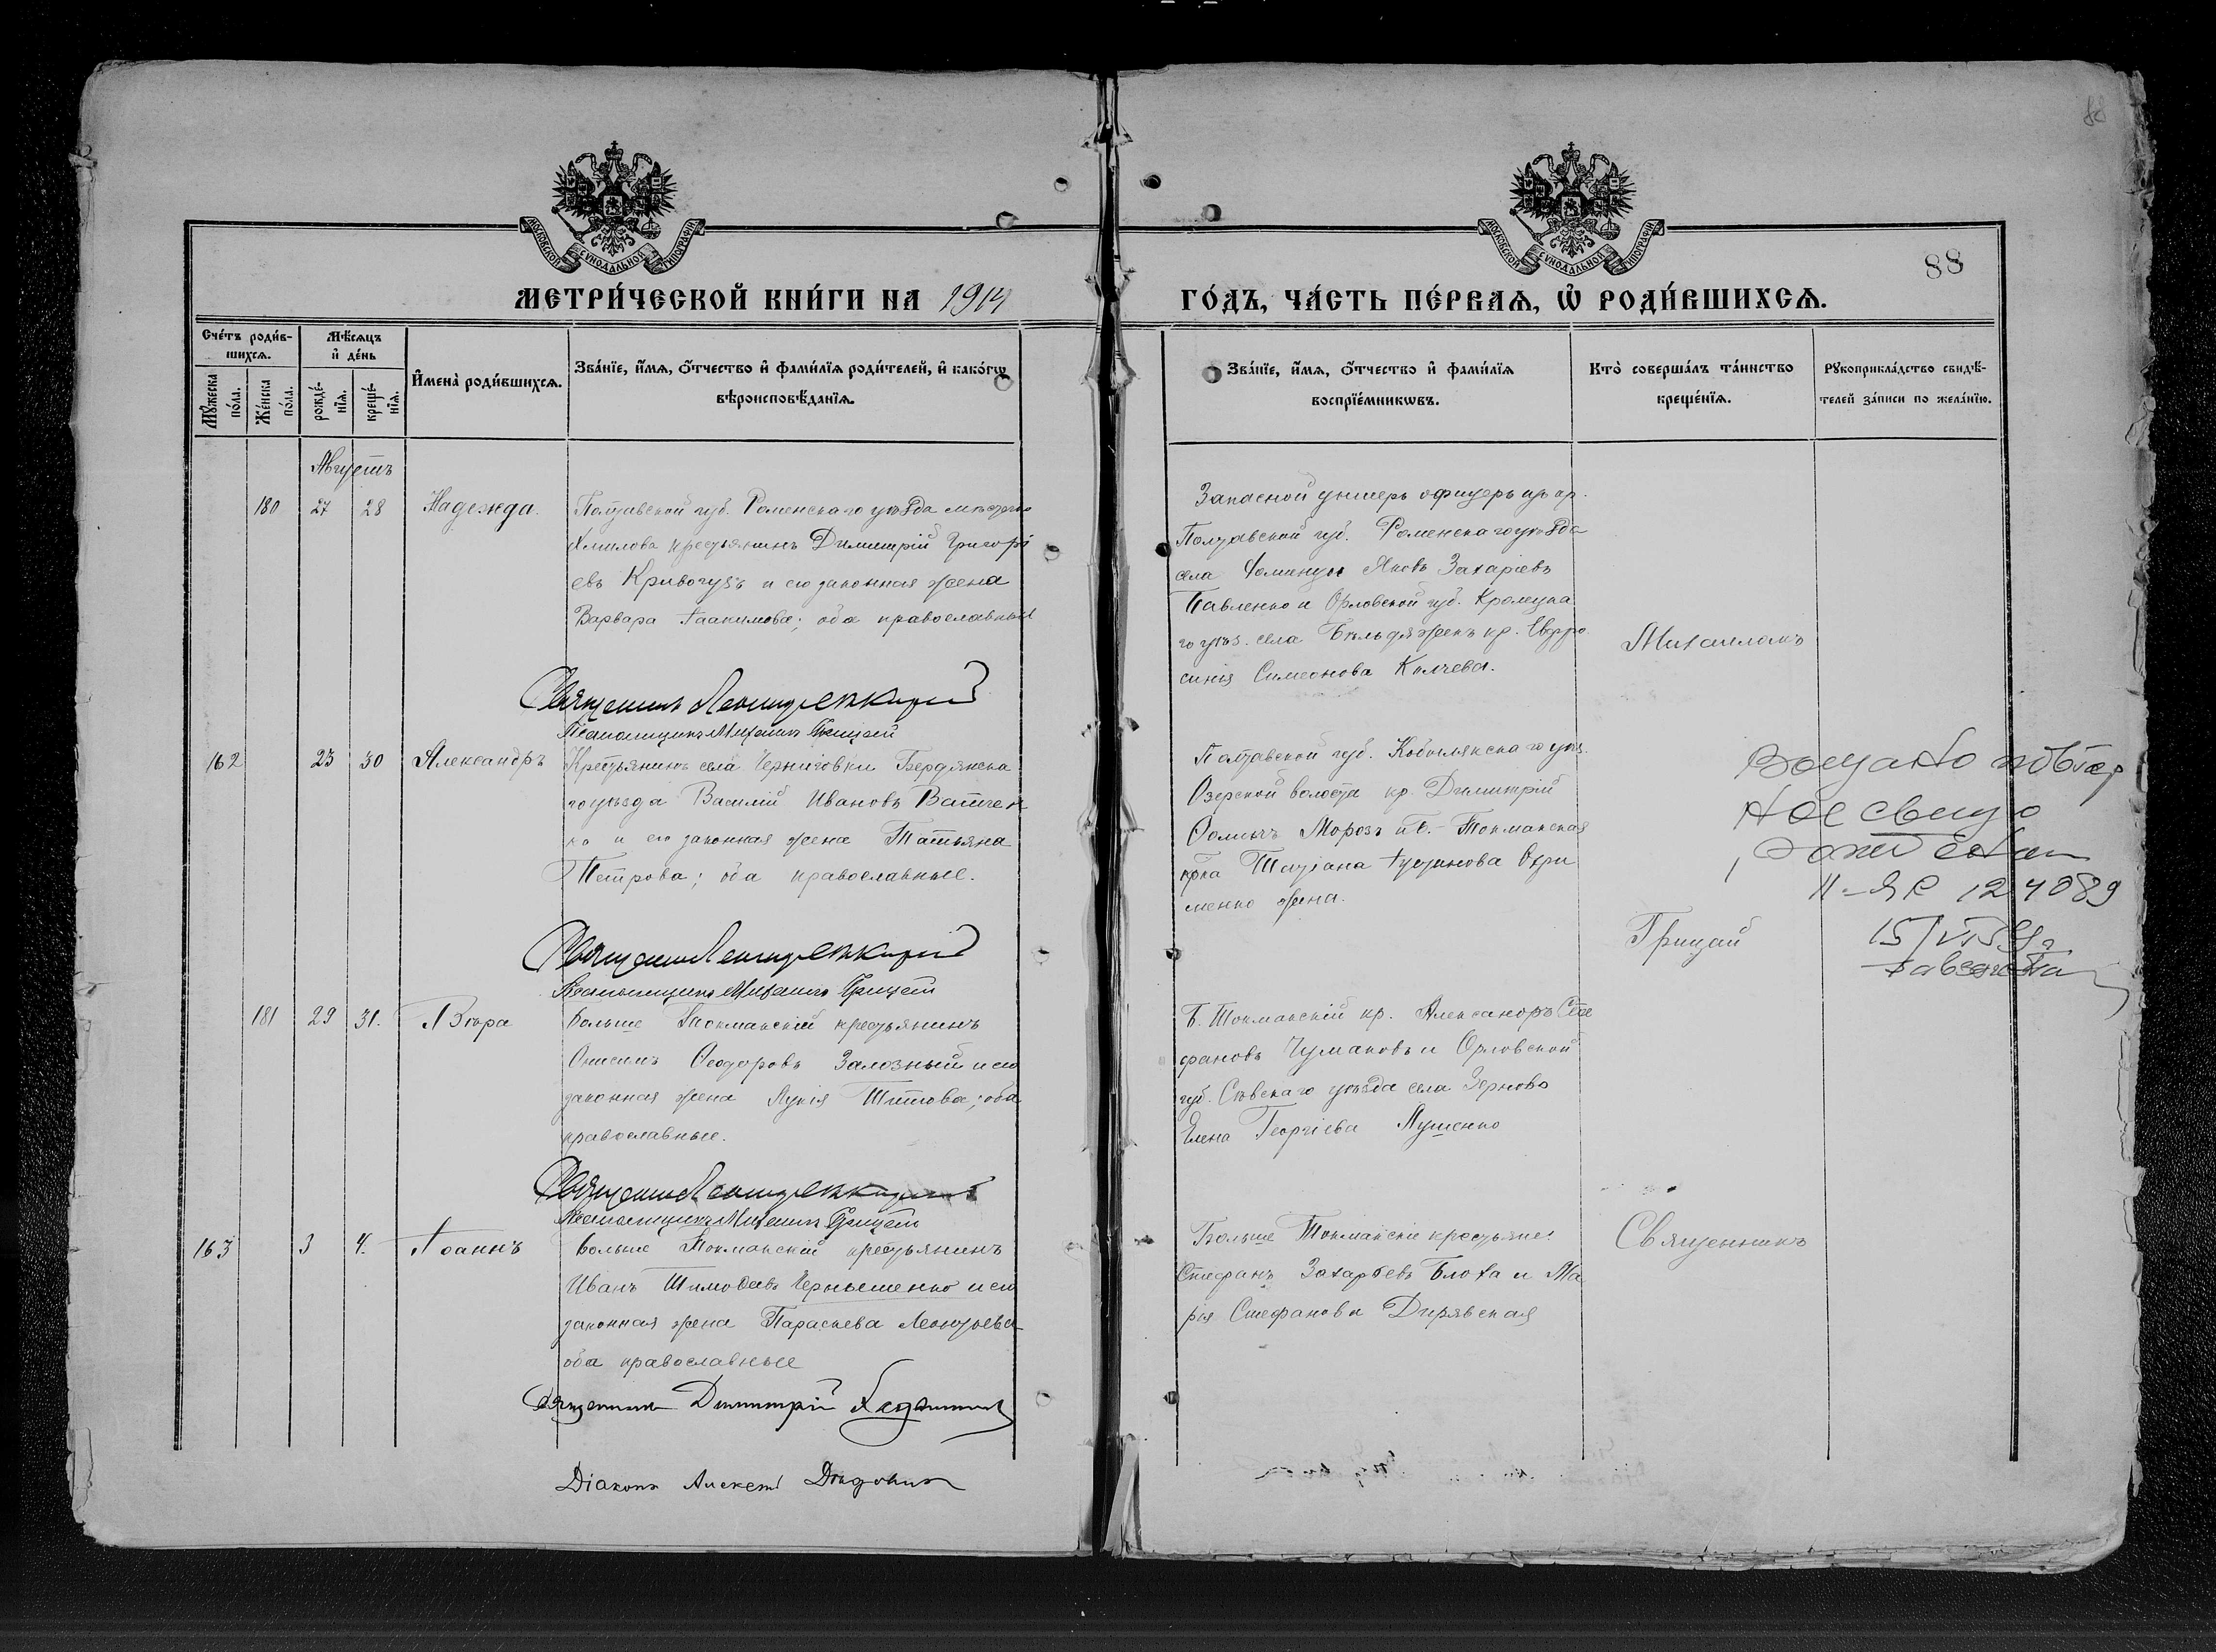 88
МОСКОВСКОЙ СѴНОДАЛЬНОЙ ТИПОГРАФІИ
МОСКОВСКОЙ СѴНОДАЛЬНОЙ ТИПОГРАФІИ
88
МЕТРИ́ЧЕСКОЙ КНИ́ГИ НА 1914
ГО́ДЪ, ЧА́СТЬ ПЕ́РВАѦ, Ѡ РОДИ́ВШИХСѦ.
Сче́тъ роди́в-
шихсѧ.
Мꙋжеска
по́ла.
Же́нска
по́ла.
Мѣ́сѧцъ
и де́нь
рожде́-
нїѧ.
креще́-
нїѧ.
Имена̀ роди́вшихсѧ.
Зва́нїе, и́мѧ, о́тчество и фами́лїѧ роди́телей, и како́гѡ
вѣроисповѣ́данїѧ.
Зва́нїе, и́мѧ, о́тчество и фами́лїѧ
воспрїе́мникѡвъ.
Кто̀ соверша́лъ та́инство
креще́нїѧ.
Рꙋкоприкла́дство свидѣ́-
телей за́писи по жела́нїю.
Августъ
180 27 28 Надежда.
Полтавской губ. Роменскаго уѣзда мѣстечка
Хмилова крестьянинъ Димитрій Григорі
евъ Кривогузъ и его законная жена
Варвара Іоакимова; оба православные
Священникъ
Псаломщикъ Михаилъ Грицай
Запасной унтеръ офицеръ изъ кр.
Полтавской губ. Роменскаго уѣзда
села Яковъ Захаріевъ
Павленко и Орловской губ. Кромска
го уѣз. села кр. Евфро
синія Симеонова
Михаиломъ
162 23 30 Александръ
Крестьянинъ села Черниговки Бердянска
го уѣзда Василій Ивановъ Ватчен
ко и его законная жена Татьяна
Петрова; оба православные.
Священникъ
Псаломщикъ Михаилъ Грицай
Полтавской губ. Кобелякскаго уѣз.
Озерской волости кр. Димитрій
Ѳомичъ Морозъ и Б.-Токмакская
крка Татіана Охри
менко жена.
Грицай
Выдано повтор
ное свид о
рождении
II-ЯР 124089
181 29 31. Вѣра
Больше Токмакскій крестьянинъ
Онисимъ Ѳеодоровъ Залозный и его
законная жена Лукія Титова; оба
православные.
Священникъ
Псаломщикъ Михаилъ Грицай
Б. Токмакскій кр. Александръ Сте
фановъ Чумаковъ и Орловской
губ. Сѣвскаго уѣзда села Зерново
Елена Георгіева Лушенко
163 3 4. Іоаннъ
Больше Токмакскій крестьянинъ
Иванъ Тимоѳеевъ Чернышенко и его
законная жена Параскева Леонтьева
оба православные
Священникъ Димитрій
Діаконъ Алексей
Больше Токмакскіе крестьяне:
Стефанъ Захарьевъ Блоха и Ма
рія Стефанова Дирявская
Священникъ